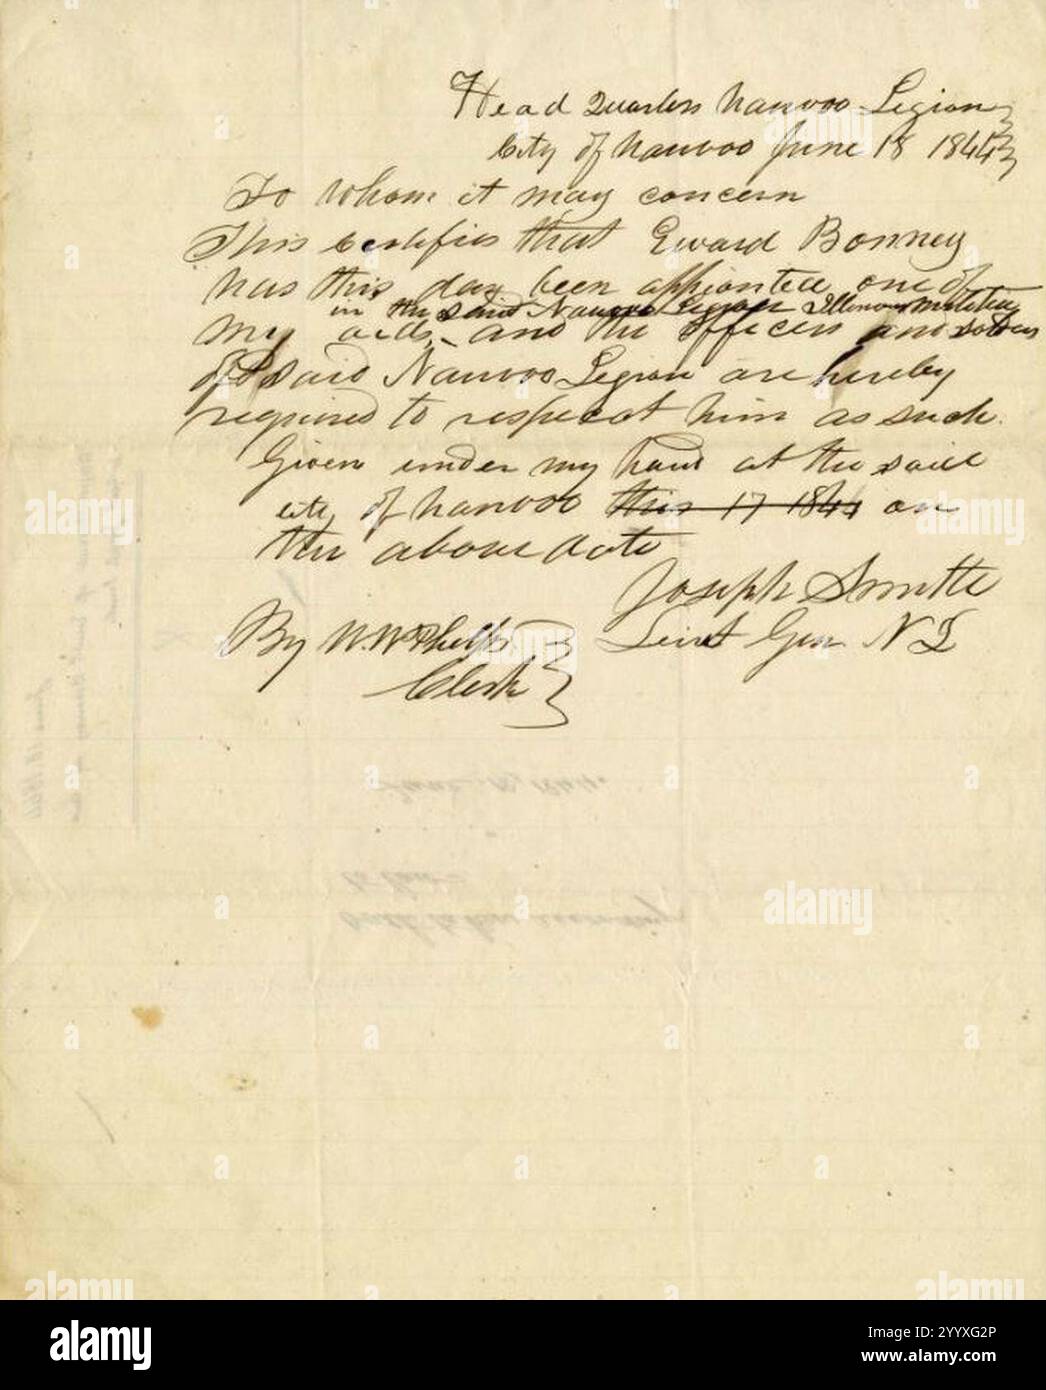 Head Quarters Nauvoo Legion
City of Nauvoo June 18 1844
To Whom it may concern
This Certifies that Eward Bonney
has this day been appionted one of
in the said Nauvoo Legion Illinois Militia
my aids, and the officers and soldiers
of said Nauvoo Legion are hereby
required to respecet him as such.
Given under my hand at the said
city of Nauvoo this 17 1844 on
the above date
Joseph Smith
By W. W. Phelps Lieut Gen N L
Clerk
alamy
Image ID: 2YYXG2P
www.alamy.com